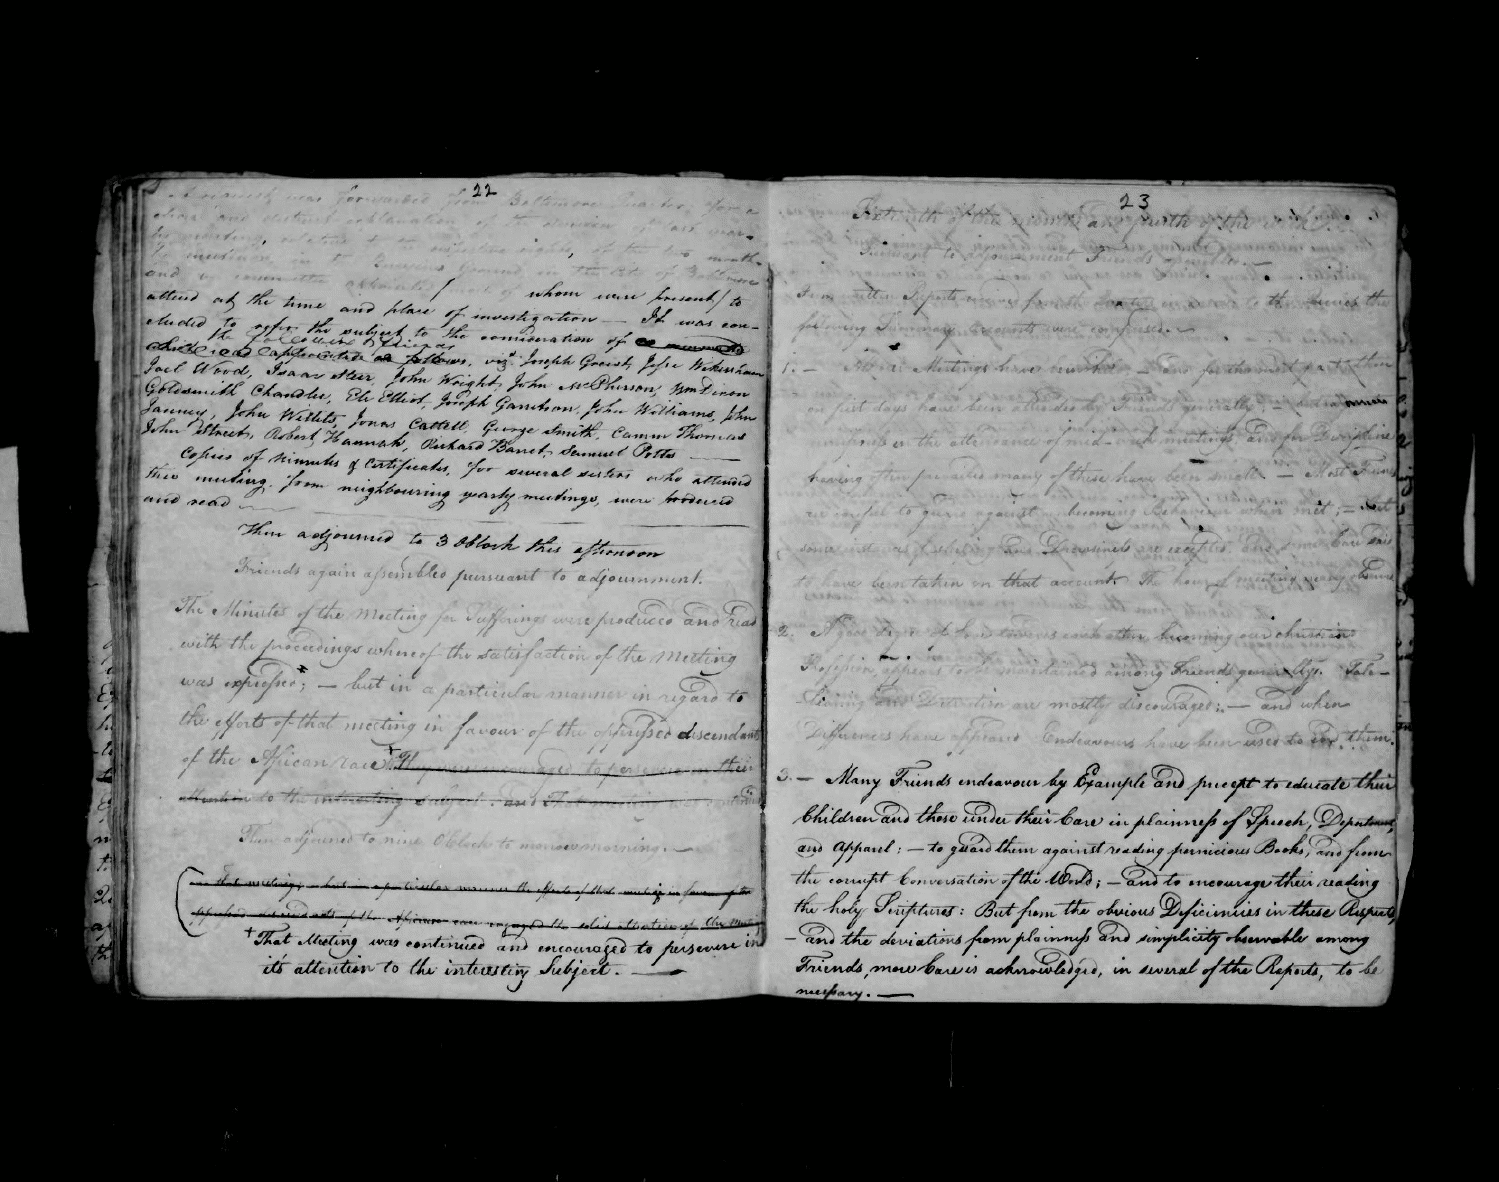 22
A request was forwarded from Baltimore Quarter, for a
clear and distinct explanation of the decision of last year's
meeting, relative to the respective rights, of the two month-
ly meetings in the Burying ground, in the City of Baltimore
and by committee appointed / most of whom were present / to
attend at the time and place of investigation — It was con-
cluded to refer the subject to the consideration of a committee
the following Friends
which was appointed as follows, vizt. Joseph Greist, Jesse Wickersham
Joel Wood, Isaac Steer, John Wright, John McPherson, Wm Dixon
Goldsmith Chandlee, Eli Elliot, Joseph Garretson, John Williams, John
Janney, John Willits, Jonas Cattell, George Smith, Camm Thomas
John Street, Robert Hannah, Richard Barret, Samuel Potts —
Copies of Minutes & Certificates, for several sisters who attended
this meeting from neighbouring yearly meetings, were produced
and read
Then adjourned to 3 OClock this afternoon
Friends again assembled pursuant to adjournment.
The Minutes of the Meeting for Sufferings were produced and read
with the proceedings whereof the satisfaction of the Meeting
was expressed; — but in a particular manner in regard to
the efforts of that meeting in favour of the oppressed descendants
of the African race + They were encouraged to persevere in their
attention to the interesting subject. and That meeting was continued
Then adjourned to nine OClock to morrow morning. —
and that meeting; whereas in a particular manner the efforts of that meeting in favour of the
oppressed descendants of the African race engaged the solid attention of this meeting
+ That Meeting was continued and encouraged to persevere in
it's attention to the interesting Subject. —
23
of the month and fourth of the week.
Pursuant to adjournment Friends assembled. —
from written Reports received from the Quarters in answer to the Queries the
following Summary Accounts were comprised. —
1. — All our Meetings have been held — and for the most part, those
on first days have been attended by Friends generally; —
in the attendance of mid-week meetings, and for Discipline
having often prevented many of these have been small. — Most Friends
are careful to guard against unbecoming Behaviour when met; — but
some instances of sleeping and Drowsiness are excepted, and some Care said
to have been taken on that account. The hour of meeting nearly observed
2. A good degree of Love towards each other, becoming our christian
Profession, appears to be maintained among Friends generally. Tale-
bearing and Detraction are mostly discouraged; — and when
Differences have appeared Endeavours have been used to end them.
3. — Many Friends endeavour by Example and precept to educate their
Children and those under their Care in plainness of Speech, Deportment,
and Apparel: — to guard them against reading pernicious Books, and from
the corrupt Conversation of the World; — and to encourage their reading
the holy Scriptures: But from the obvious Deficiencies in these Respects,
— and the deviations from plainness and simplicity observable among
Friends, more Care is acknowledged, in several of the Reports, to be
necessary. —